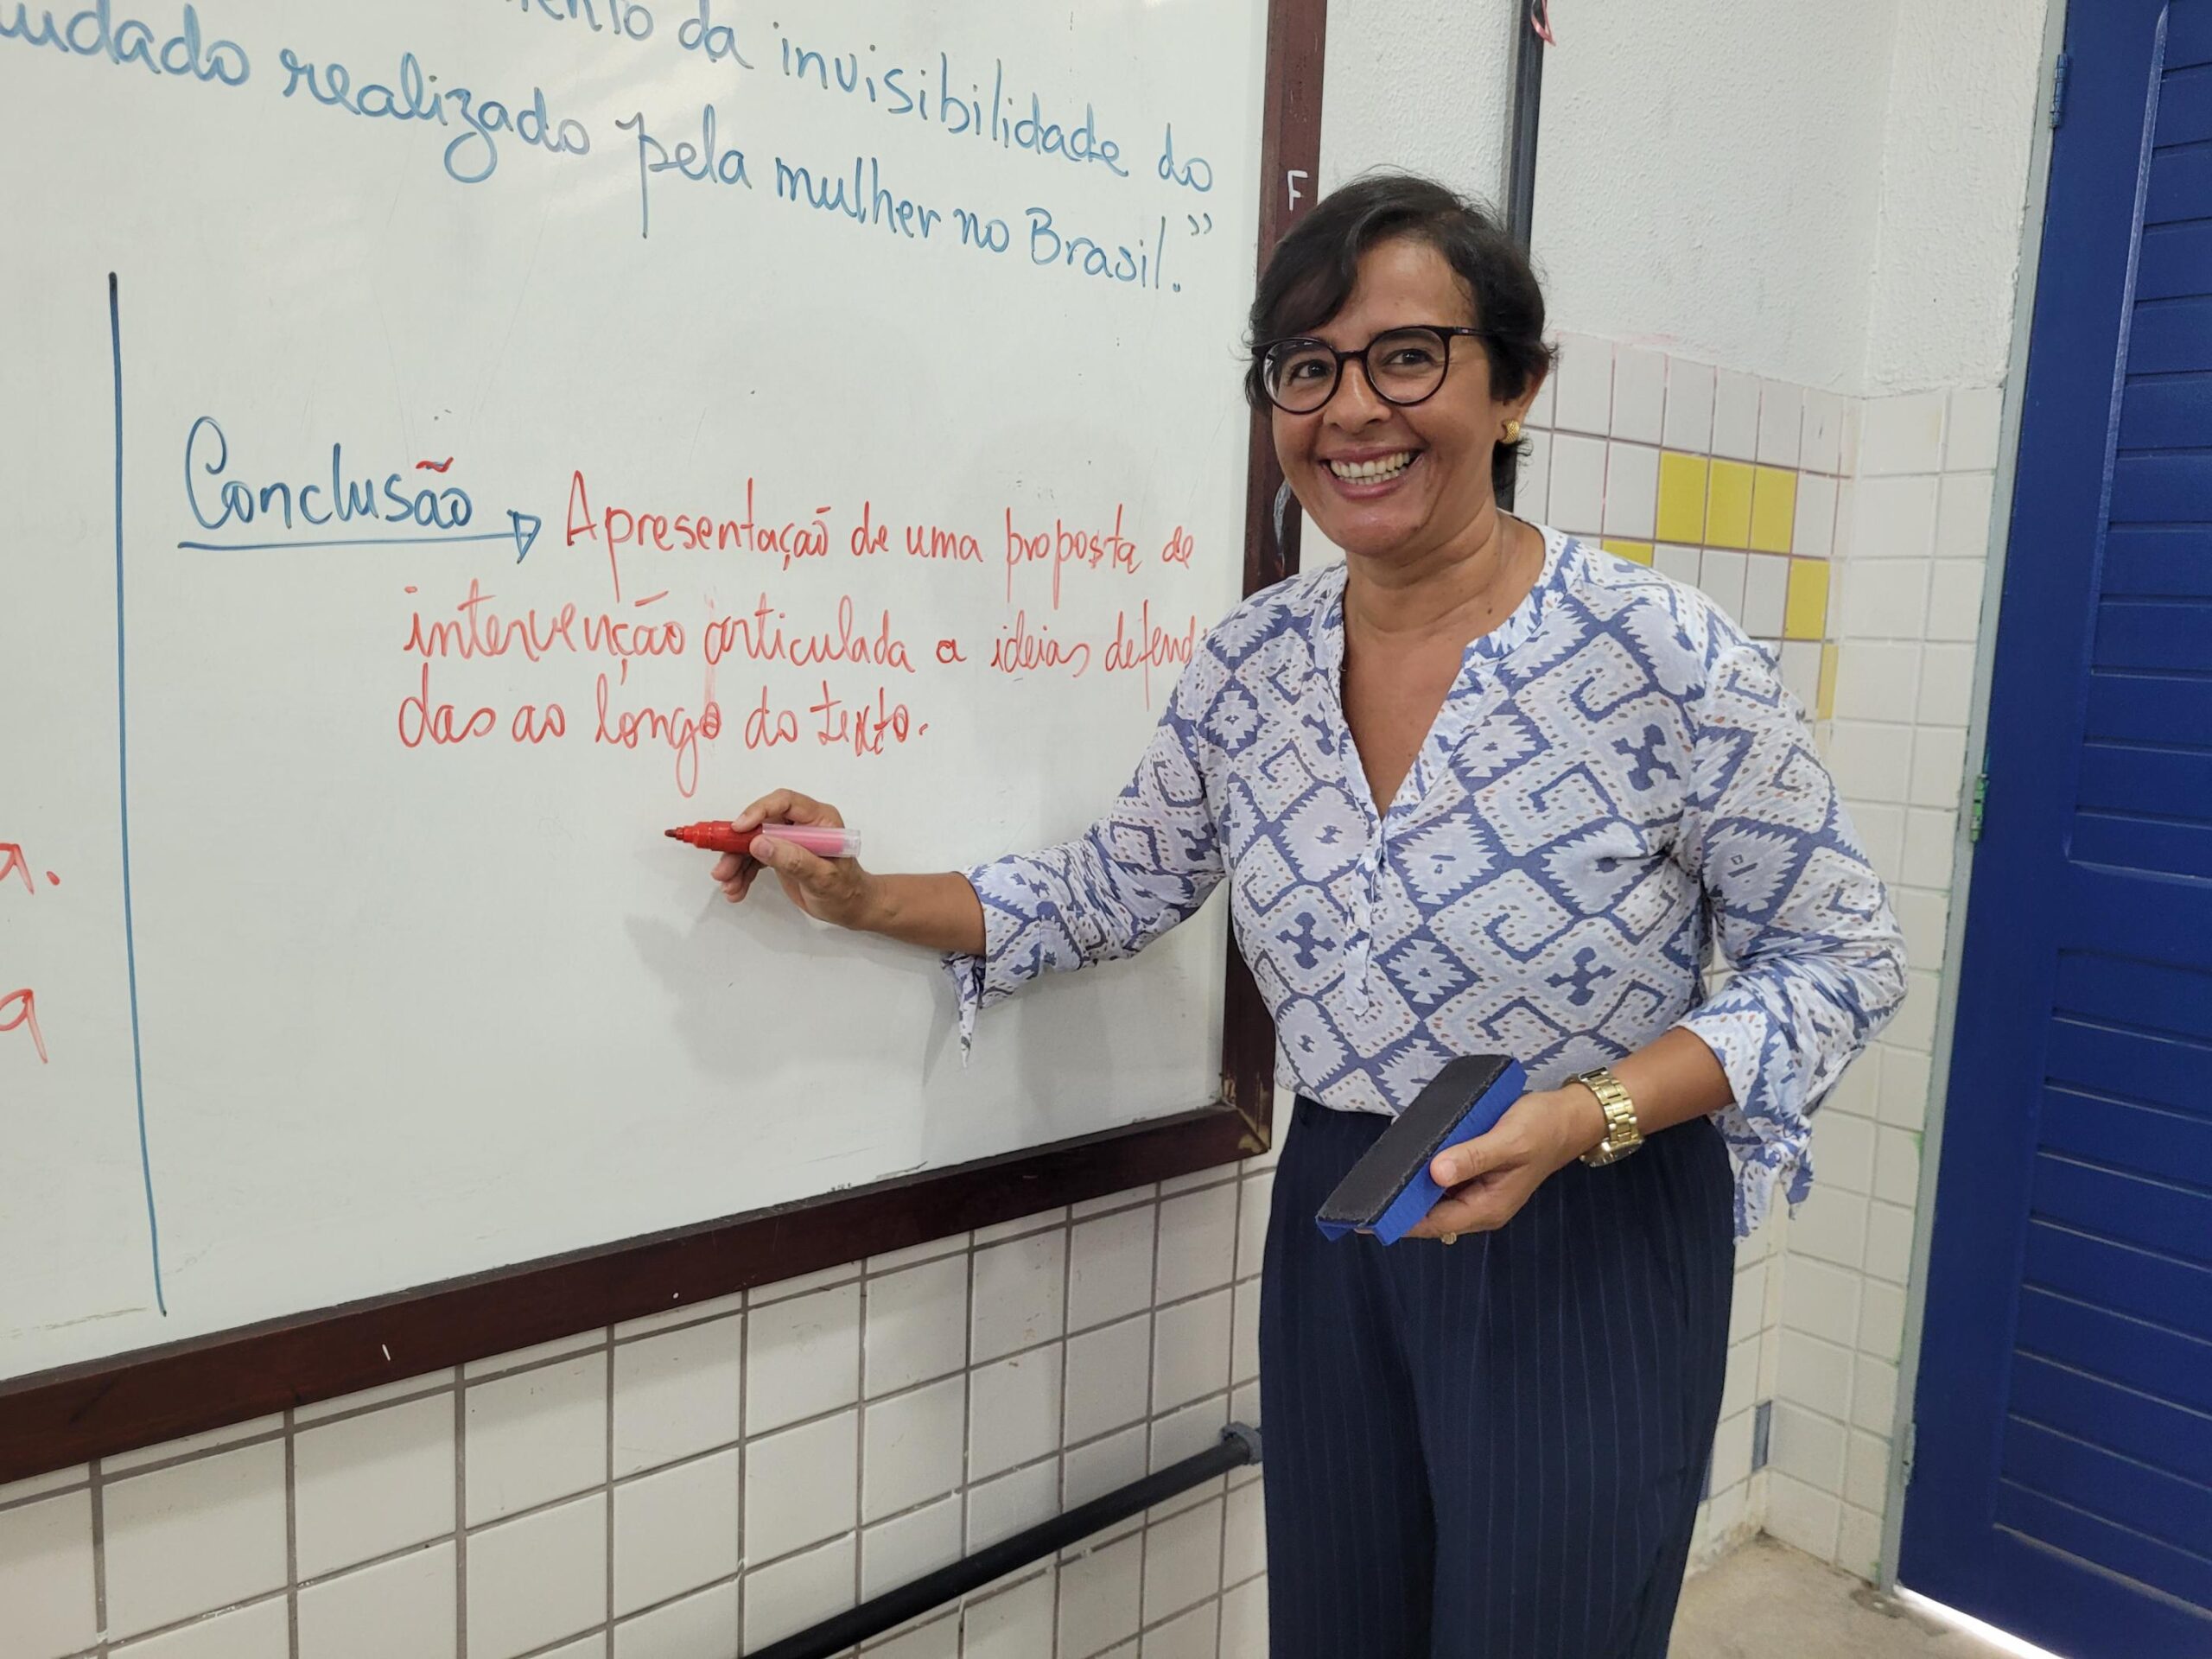 da invisibilidade do
realizado pela mulher no Brasil."
F
Conclusão → Apresentação de uma proposta de
intervenção articulada a ideias defendi
das ao longo do texto.
a.
a